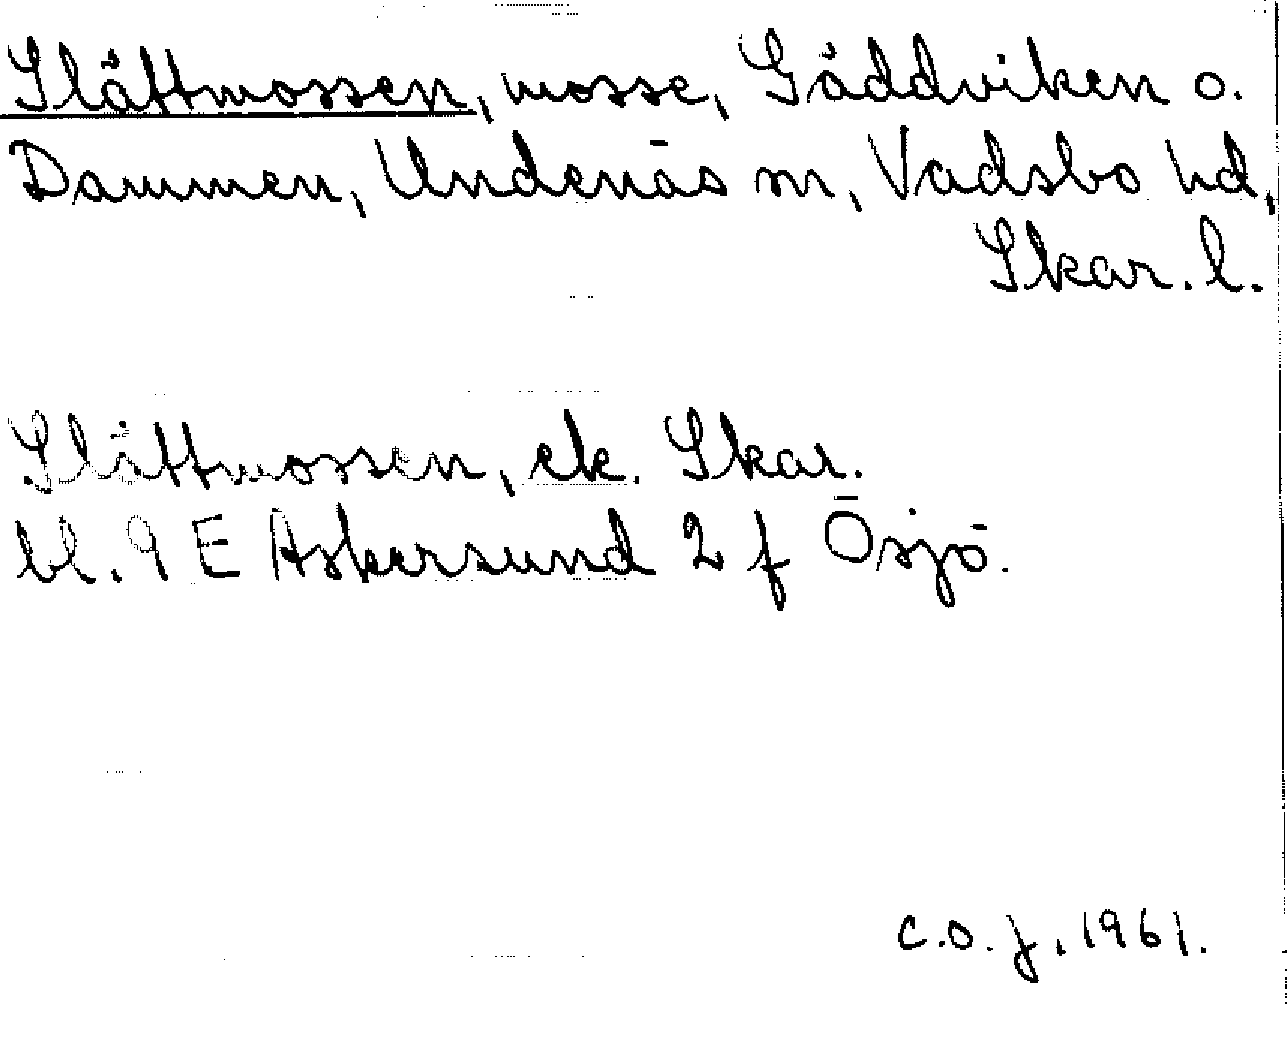 Slåttmossen, mosse, Gäddviken o.
Dammen, Undenäs sn, Vadsbo hd,
Skar. l.
Slåttmossen, ek. Skar.
bl. 9 E Askersund 2 f Ösjö.
C.O.J. 1961.